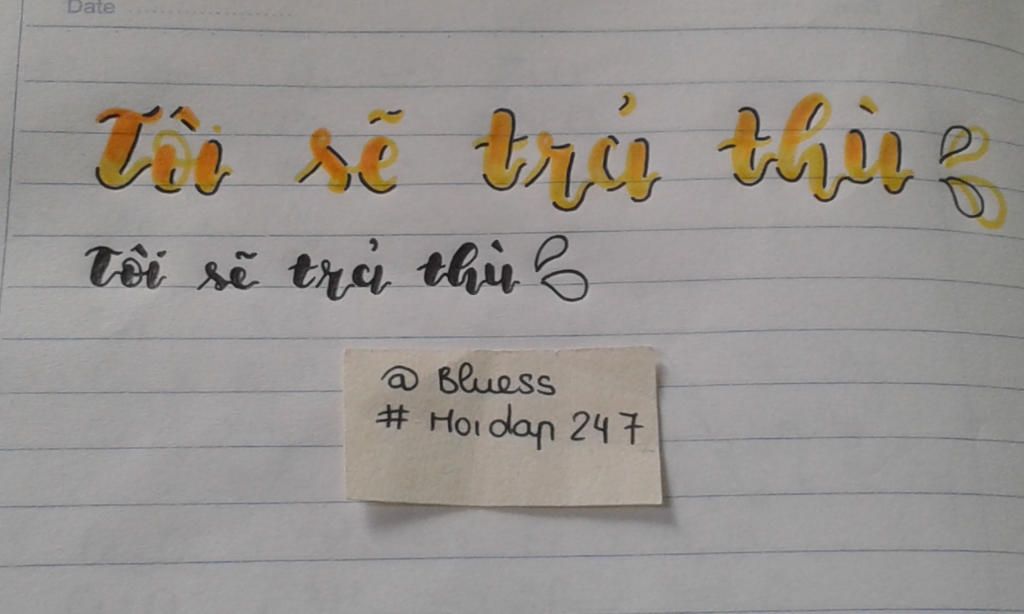 Date
Tôi sẽ trả thù
Tôi sẽ trả thù
@ Bluess
# Hoidap 247